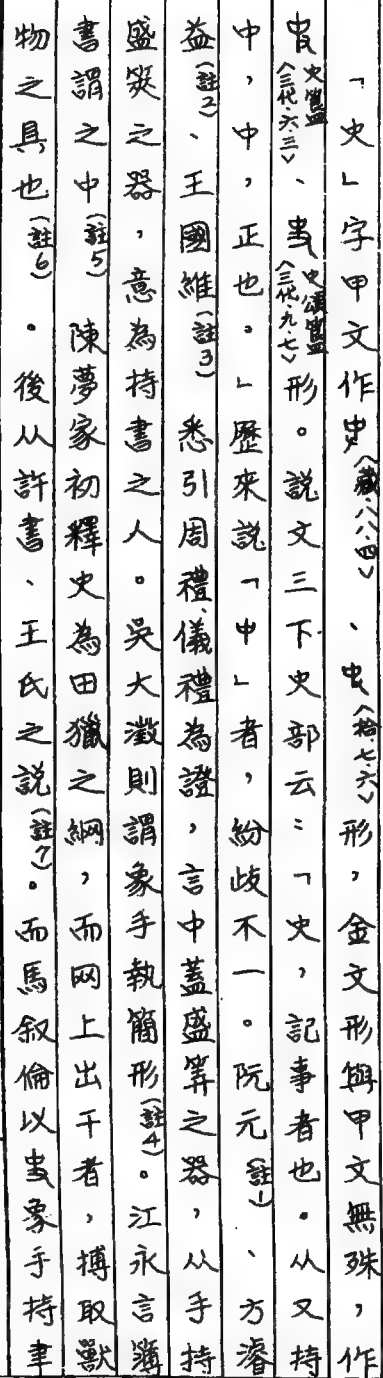 「史」字甲文作㕜〈藏.八八.四〉、㕜〈拾.七.六〉形，金文形與甲文無殊，作
㕜史簋〈三代.六.三〉、㕜史頌簋〈三代.九.七〉形。說文三下史部云：「史，記事者也。从又持
中，中，正也。」歷來說「中」者，紛歧不一。阮元（註1）、方濬
益（註2）、王國維（註3）悉引周禮、儀禮為證，言中蓋盛筭之器，从手持
盛筴之器，意為持書之人。吳大澂則謂象手執簡形（註4）。江永言簿
書謂之中（註5）陳夢家初釋史為田獵之網，而网上出干者，搏取獸
物之具也（註6）。後从許書、王氏之說（註7）。而馬叙倫以㕜象手持聿